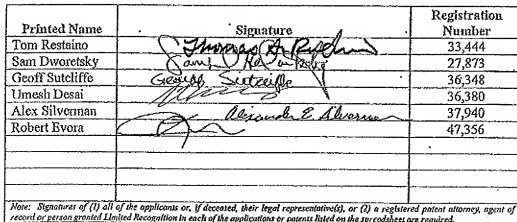 Printed Name Signature Registration Number
Tom Restaino Thomas A. Restaino 33,444
Sam Dworetsky Samuel 27,873
Geoff Sutcliffe George Sutcliffe 36,348
Umesh Desai 36,380
Alex Silverman Alexander E. Silverman 37,940
Robert Evora 47,356
Note: Signatures of (1) all of the applicants or, if deceased, their legal representative(s), or (2) a registered patent attorney, agent of
record or person granted Limited Recognition in each of the applications or patents listed on the spreadsheet are required.